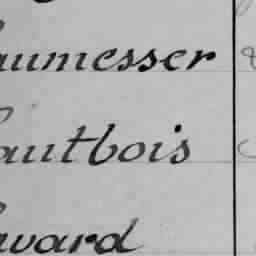 aumesser
autbois
avard